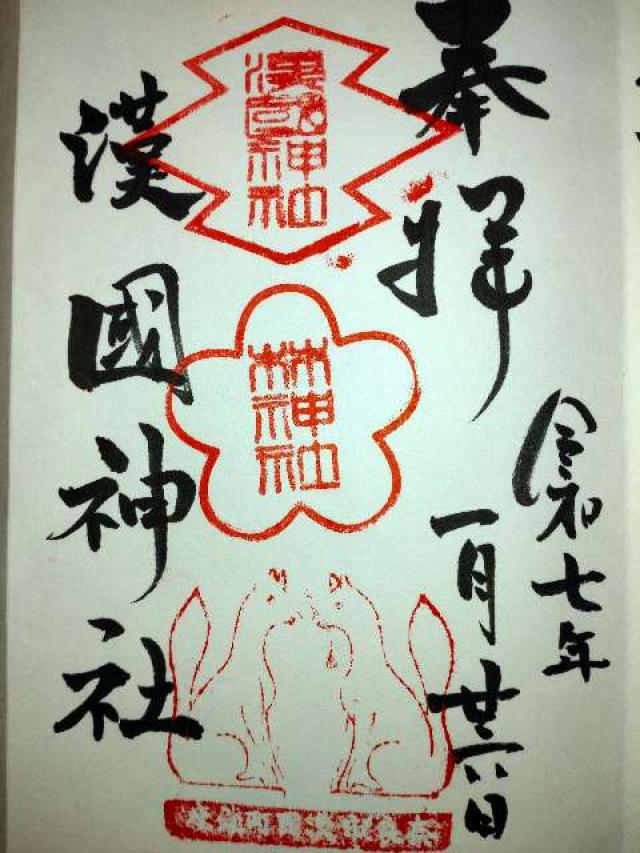 奉拝
令和七年
一月廿六日
漢國神社
林神社
漢國神社